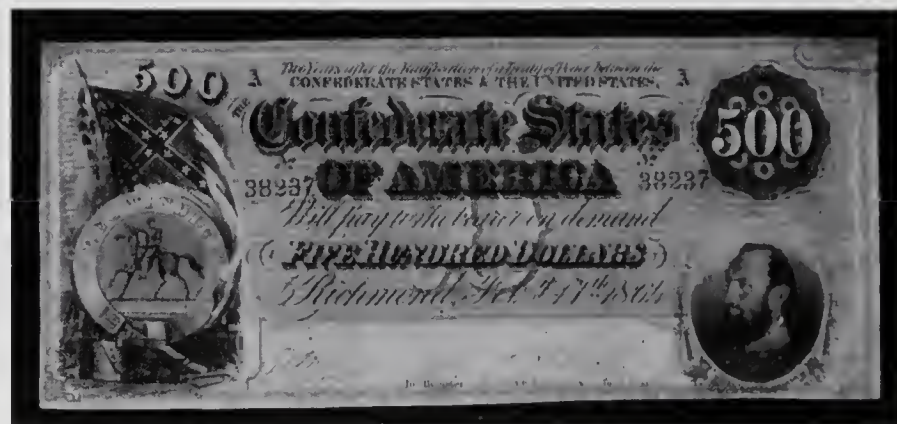 500
A Two Years after the Ratification of a Treaty of Peace between the A
CONFEDERATE STATES & THE UNITED STATES,
THE
Confederate States
500
38237 OF AMERICA 38237
Will pay to the bearer on demand
FIVE HUNDRED DOLLARS
Richmond, Feb. 17th 1864